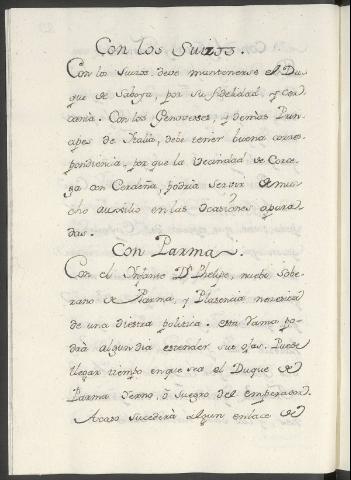 Con los Suizos.
Con los Suizos deve mantenerse el Du-
que de Saboya, por su fidelidad, y cer-
cania. Con los Genoveses, y demas Prin-
cipes de Italia, debe tener buena corres-
pondiencia, por que la Vecindad de Corce-
ga con Cerdeña, podria servir de mu-
cho auxilio en las Ocasiones apura-
das.
Con Parma.
Con el Infante Dn Phelipe, nuebo Sobe-
rano de Parma, y Plasencia necesita
de una diestra politica. esta rama po-
drà algun dia estender sus ojas. Puede
llegar tiempo en que sea el Duque de
Parma Yerno, ò suegro del emperador.
Acaso sucederà algun enlace de